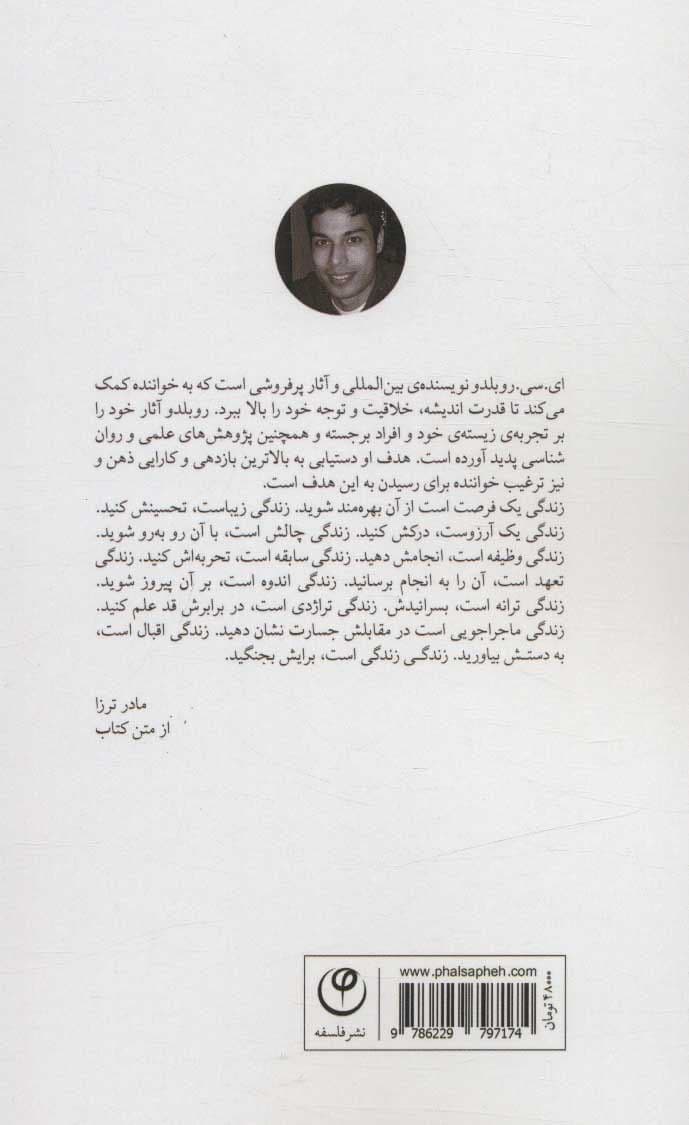 ای.سی.روبلدو نویسنده‌ی بین‌المللی و آثار پرفروشی است که به خواننده کمک
می‌کند تا قدرت اندیشه، خلاقیت و توجه خود را بالا ببرد. روبلدو آثار خود را
بر تجربه‌ی زیسته‌ی خود و افراد برجسته و همچنین پژوهش‌های علمی و روان
شناسی پدید آورده است. هدف او دستیابی به بالاترین بازدهی و کارایی ذهن و
نیز ترغیب خواننده برای رسیدن به این هدف است.
زندگی یک فرصت است از آن بهره‌مند شوید. زندگی زیباست، تحسینش کنید.
زندگی یک آرزوست، درکش کنید. زندگی چالش است، با آن رو به‌رو شوید.
زندگی وظیفه است، انجامش دهید. زندگی سابقه است، تحربه‌اش کنید. زندگی
تعهد است، آن را به انجام برسانید. زندگی اندوه است، بر آن پیروز شوید.
زندگی ترانه است، بسرائیدش. زندگی تراژدی است، در برابرش قد علم کنید.
زندگی ماجراجویی است در مقابلش جسارت نشان دهید. زندگی اقبال است،
به دستش بیاورید. زندگی زندگی است، برایش بجنگید.
مادر ترزا
از متن کتاب
www.phalsapheh.com
۴۸۰۰۰ تومان
9 786229 797174
نشر فلسفه